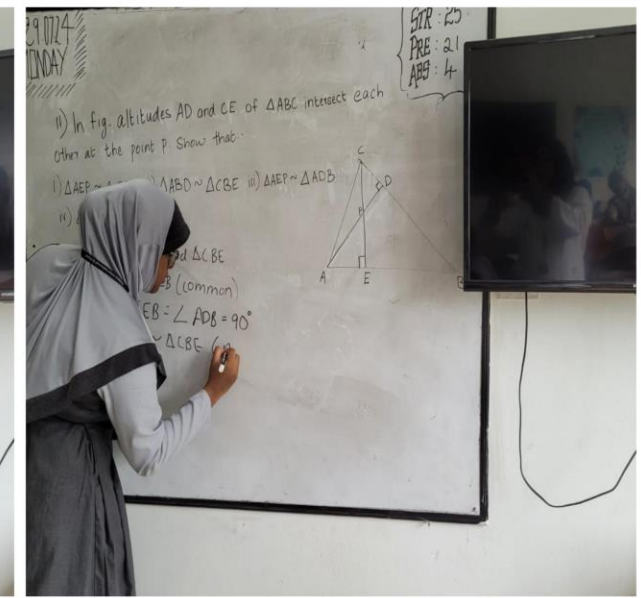 29 07 24
MONDAY
STR : 25
PRE : 21
ABS : 4
11) In fig. altitudes AD and CE of △ABC intersect each
other at the point P. Show that..
i) △AEP ~ △ABD ~ △CBE iii) △AEP ~ △ADB
iv)
△CBE
(common)
EB = ∠ADB = 90°
~ △CBE (
C
D
P
A
E
B